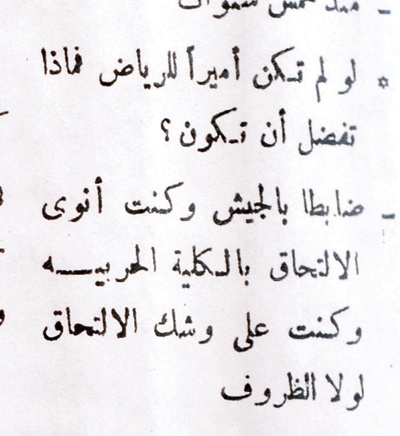 - منذ خمس سنوات
* لو لم تكن أميراً للرياض فماذا
تفضل أن تكون ؟
- ضابطا بالجيش وكنت أنوى
الالتحاق بالكلية الحربيـــه
وكنت على وشك الالتحاق
لولا الظروف